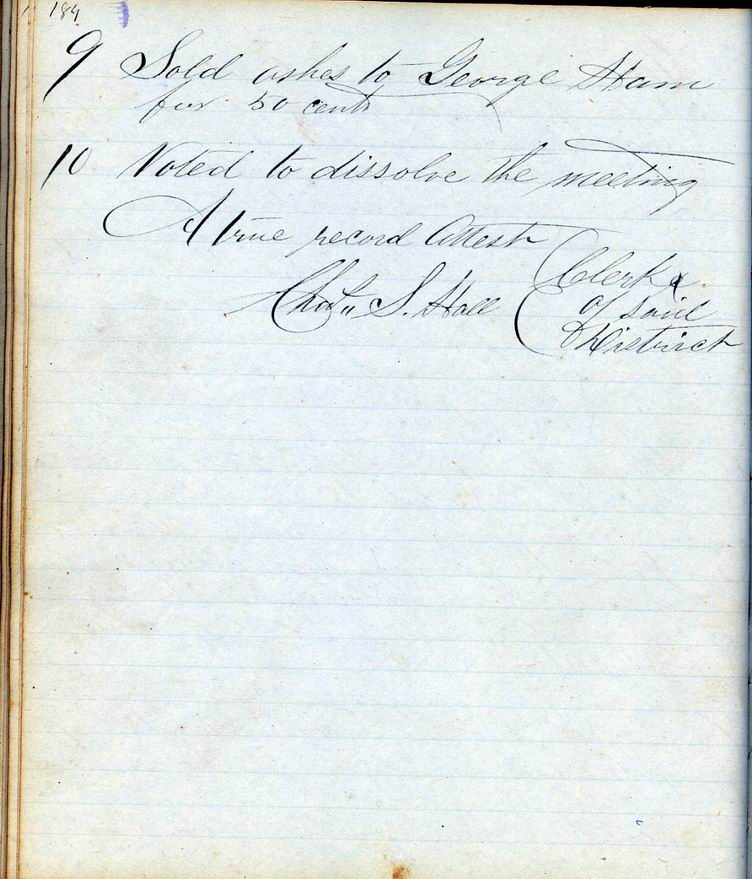 184
9 Sold ashes to George Ham
for 50 cents
10 Voted to dissolve the meeting
A true record Attest
Chas. S. Hall
Clerk
of said
District